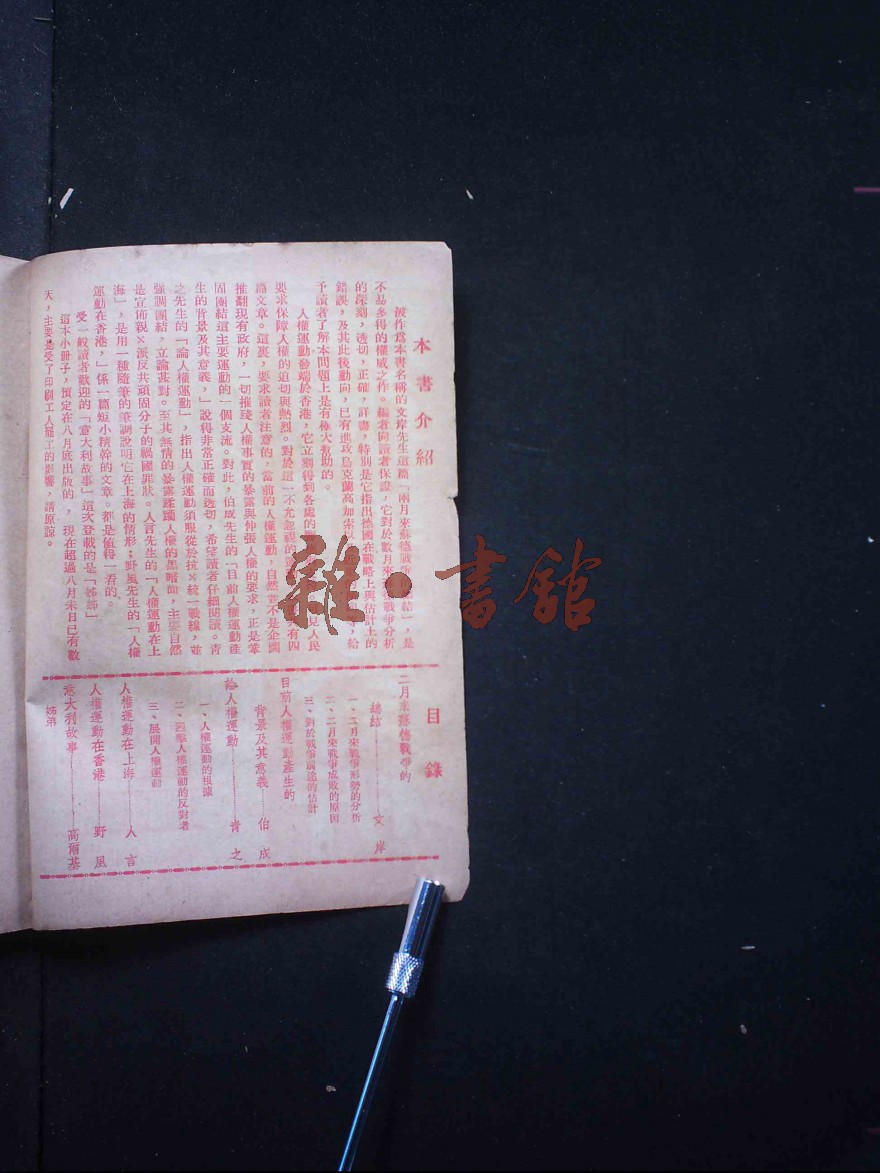 本書介紹
被作爲本書名稱的文岸先生這篇「兩月來蘇德戰爭的總結」，是
不易多得的權威之作。編者向讀者保證，它對於數月來蘇德戰爭分析
的深刻，透切，正確，詳盡，特別是它指出德國在戰略上與估計上的
錯誤，及其此後動向，已有進攻烏克蘭高加索以，給
予讀者了解本問題上是有極大幫助的。
人權運動發端於香港，它立刻得到各處的見人民
要求保障人權的迫切與熱烈。對於這一不尤忽視的有四
篇文章。這裏，要求讀者注意的，當前的人權運動，自然並不是企圖
推翻現有政府，一切摧殘人權事實的暴露與伸張人權的要求，正是鞏
固團結這主要運動的一個支流。對此，伯成先生的「目前人權運動產
生的背景及其意義，」說得非常正確而透切，希望讀者仔細閱讀。青
之先生的「論人權運動」，指出人權運動須服從於抗×統一戰線，並
強調團結，立論甚對。至其無情的暴露蹂躪人權的黑暗面，主要自然
是宣佈親×派反共頑固分子的禍國罪狀。人言先生的「人權運動在上
海」，是用一種隨筆的筆調說明它在上海的情形；野風先生的「人權
運動在香港，」係一篇短小精幹的文章。都是值得一看的。
受一般讀者歡迎的「意大利故事」這次登載的是「姊姊」
這本小冊子，預定在八月底出版的，現在超過八月末日已有數
天，主要是受了印刷工人罷工的影響，請原諒。
目錄
二月來蘇德戰爭的
總結 文岸
一、二月來戰爭形勢的分析
二、二月來戰爭成敗的原因
三、對於戰爭前途的估計
目前人權運動產生的
背景及其意義 伯成
論人權運動 青之
一、人權運動的根據
二、回擊人權運動的反對者
三、展開人權運動
人權運動在上海 人言
人權運動在香港 野風
意大利故事 高爾基
姊弟
雜·書舘